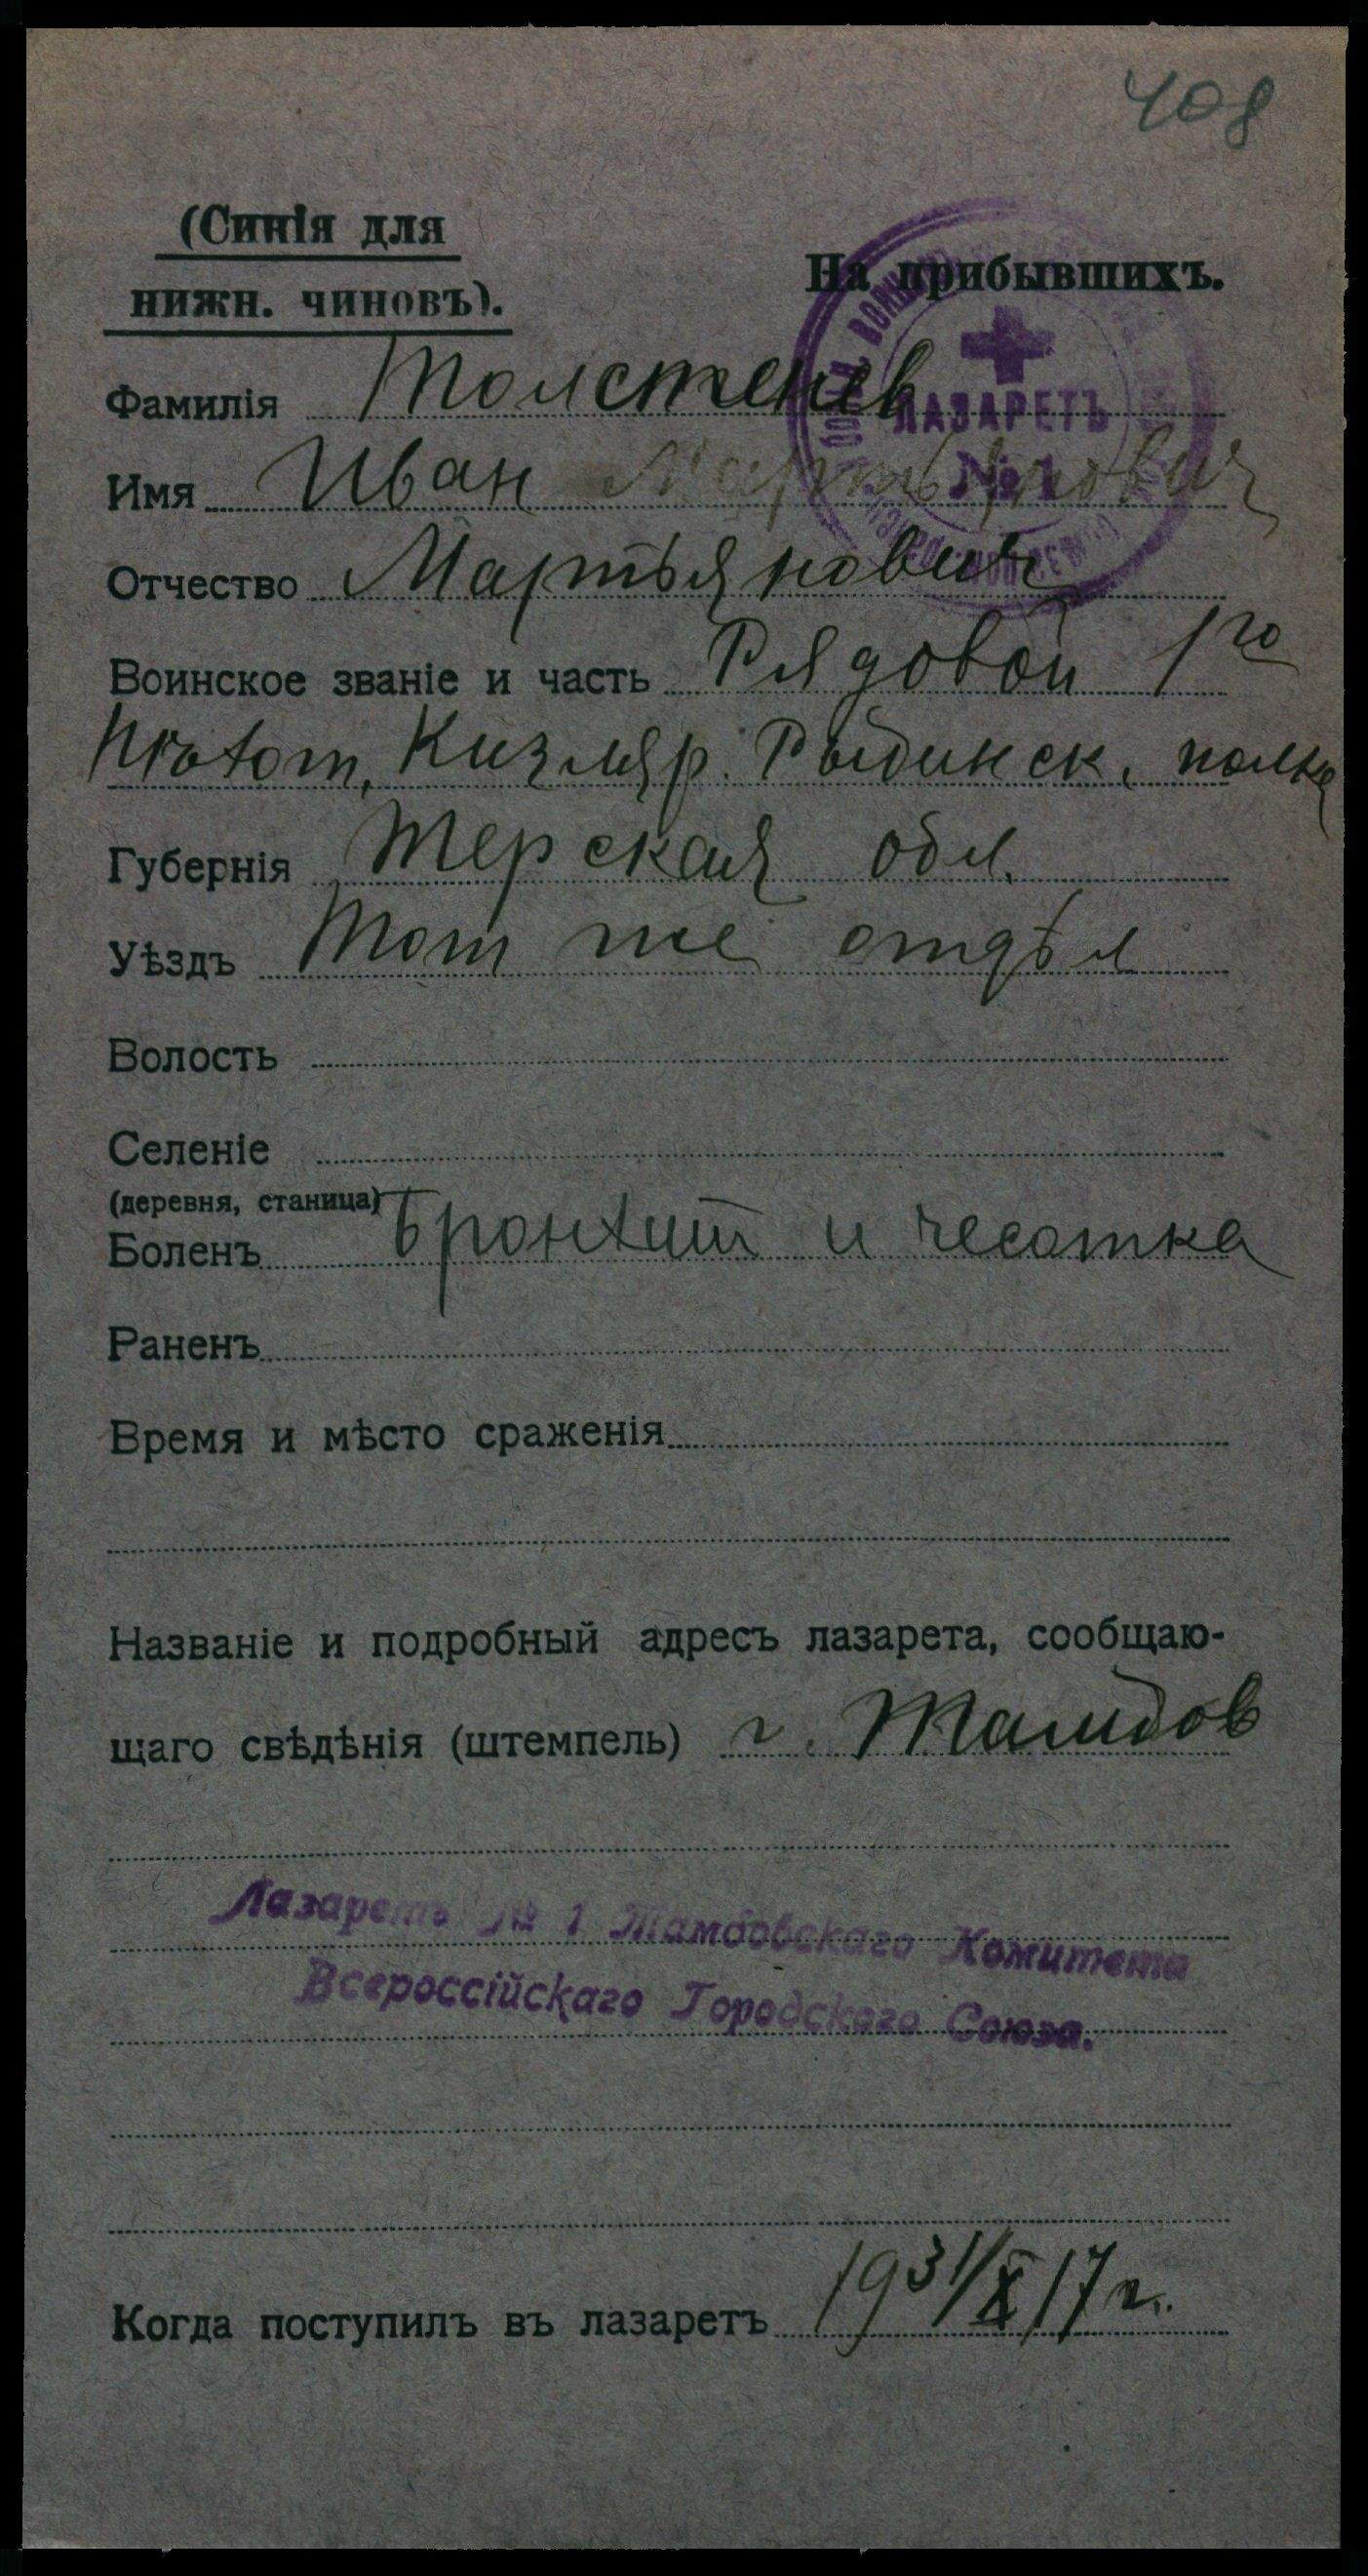 408
(Синія для
нижн. чиновъ).
На прибывшихъ.
ЛАЗАРЕТЪ
№ 1
Фамилія Толстенев
Имя Иван Мартьянович
Отчество Мартьянович
Воинское званіе и часть Рядовой 1го
Кизляр. Рыбинск. полка
Губернія Терская обл.
Уѣздъ Тот же отдѣл
Волость
Селеніе
(деревня, станица)
Боленъ Бронхит и чесотка
Раненъ
Время и мѣсто сраженія
Названіе и подробный адресъ лазарета, сообщаю-
щаго свѣдѣнія (штемпель) г. Тамбов
Лазаретъ № 1 Тамбовскаго Комитета
Всероссійскаго Городского Союза.
Когда поступилъ въ лазаретъ 19 31/X 17 г.